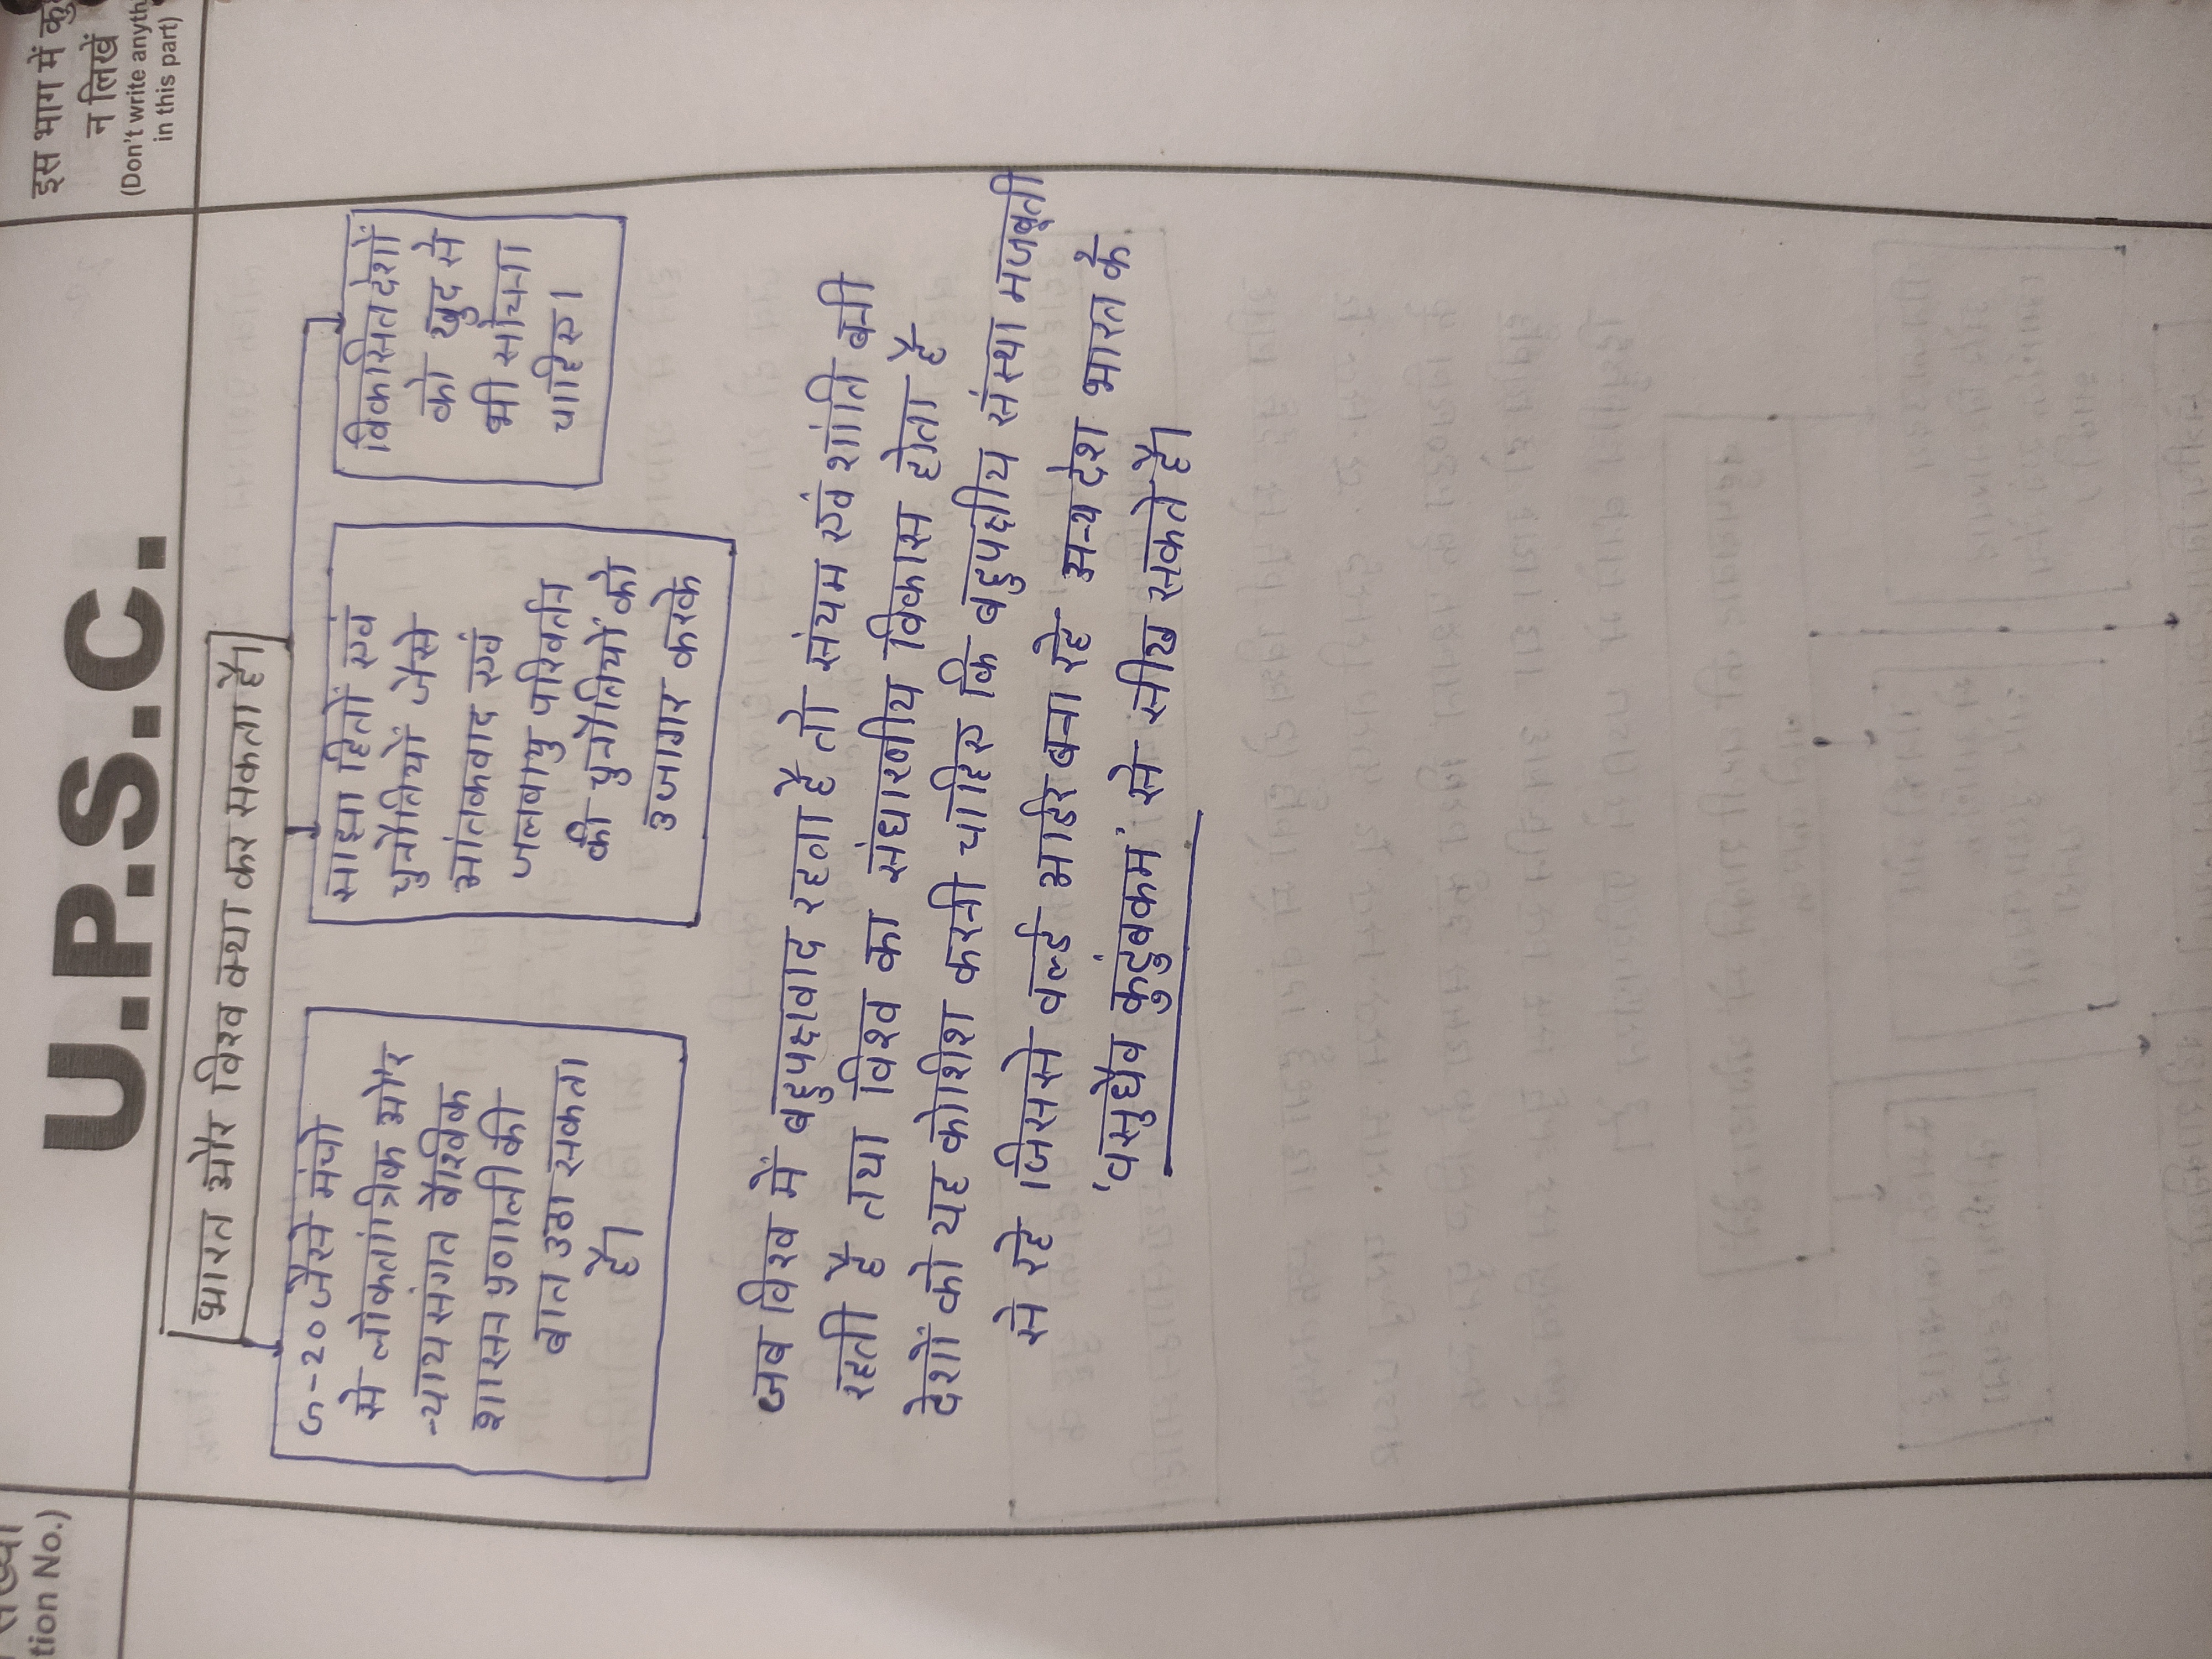 इस भाग में
न लिखें
(Don't write
in this part)
tion No.)
U.P.S.C.
भारत और विश्व क्या कर सकता है।
G-20 जैसे मंचो
से लोकतांत्रिक और
न्यायसंगत वैश्विक
शासन प्रणाली की
बात उठा सकता
है।
साझा हितों एवं
चुनौतियों जैसे
आंतकवाद एवं
जलवायु परिवर्तन
की चुनौतियों को
उजागर करके
विकसित देशों
को खुद से
भी सोचना
चाहिए।
जब विश्व में बहुपक्षवाद रहता है तो संयम एवं शांति बनी
रहती है तथा विश्व का संधारणीय विकास होता है
देशों को यह कोशिश करनी चाहिए कि बहुपक्षीय संस्था मजबूती
से रहे जिससे वर्ल्ड आर्डर बना रहे अन्य देश भारत के
'वसुधैव कुटुंबकम' से सीख सकते है।